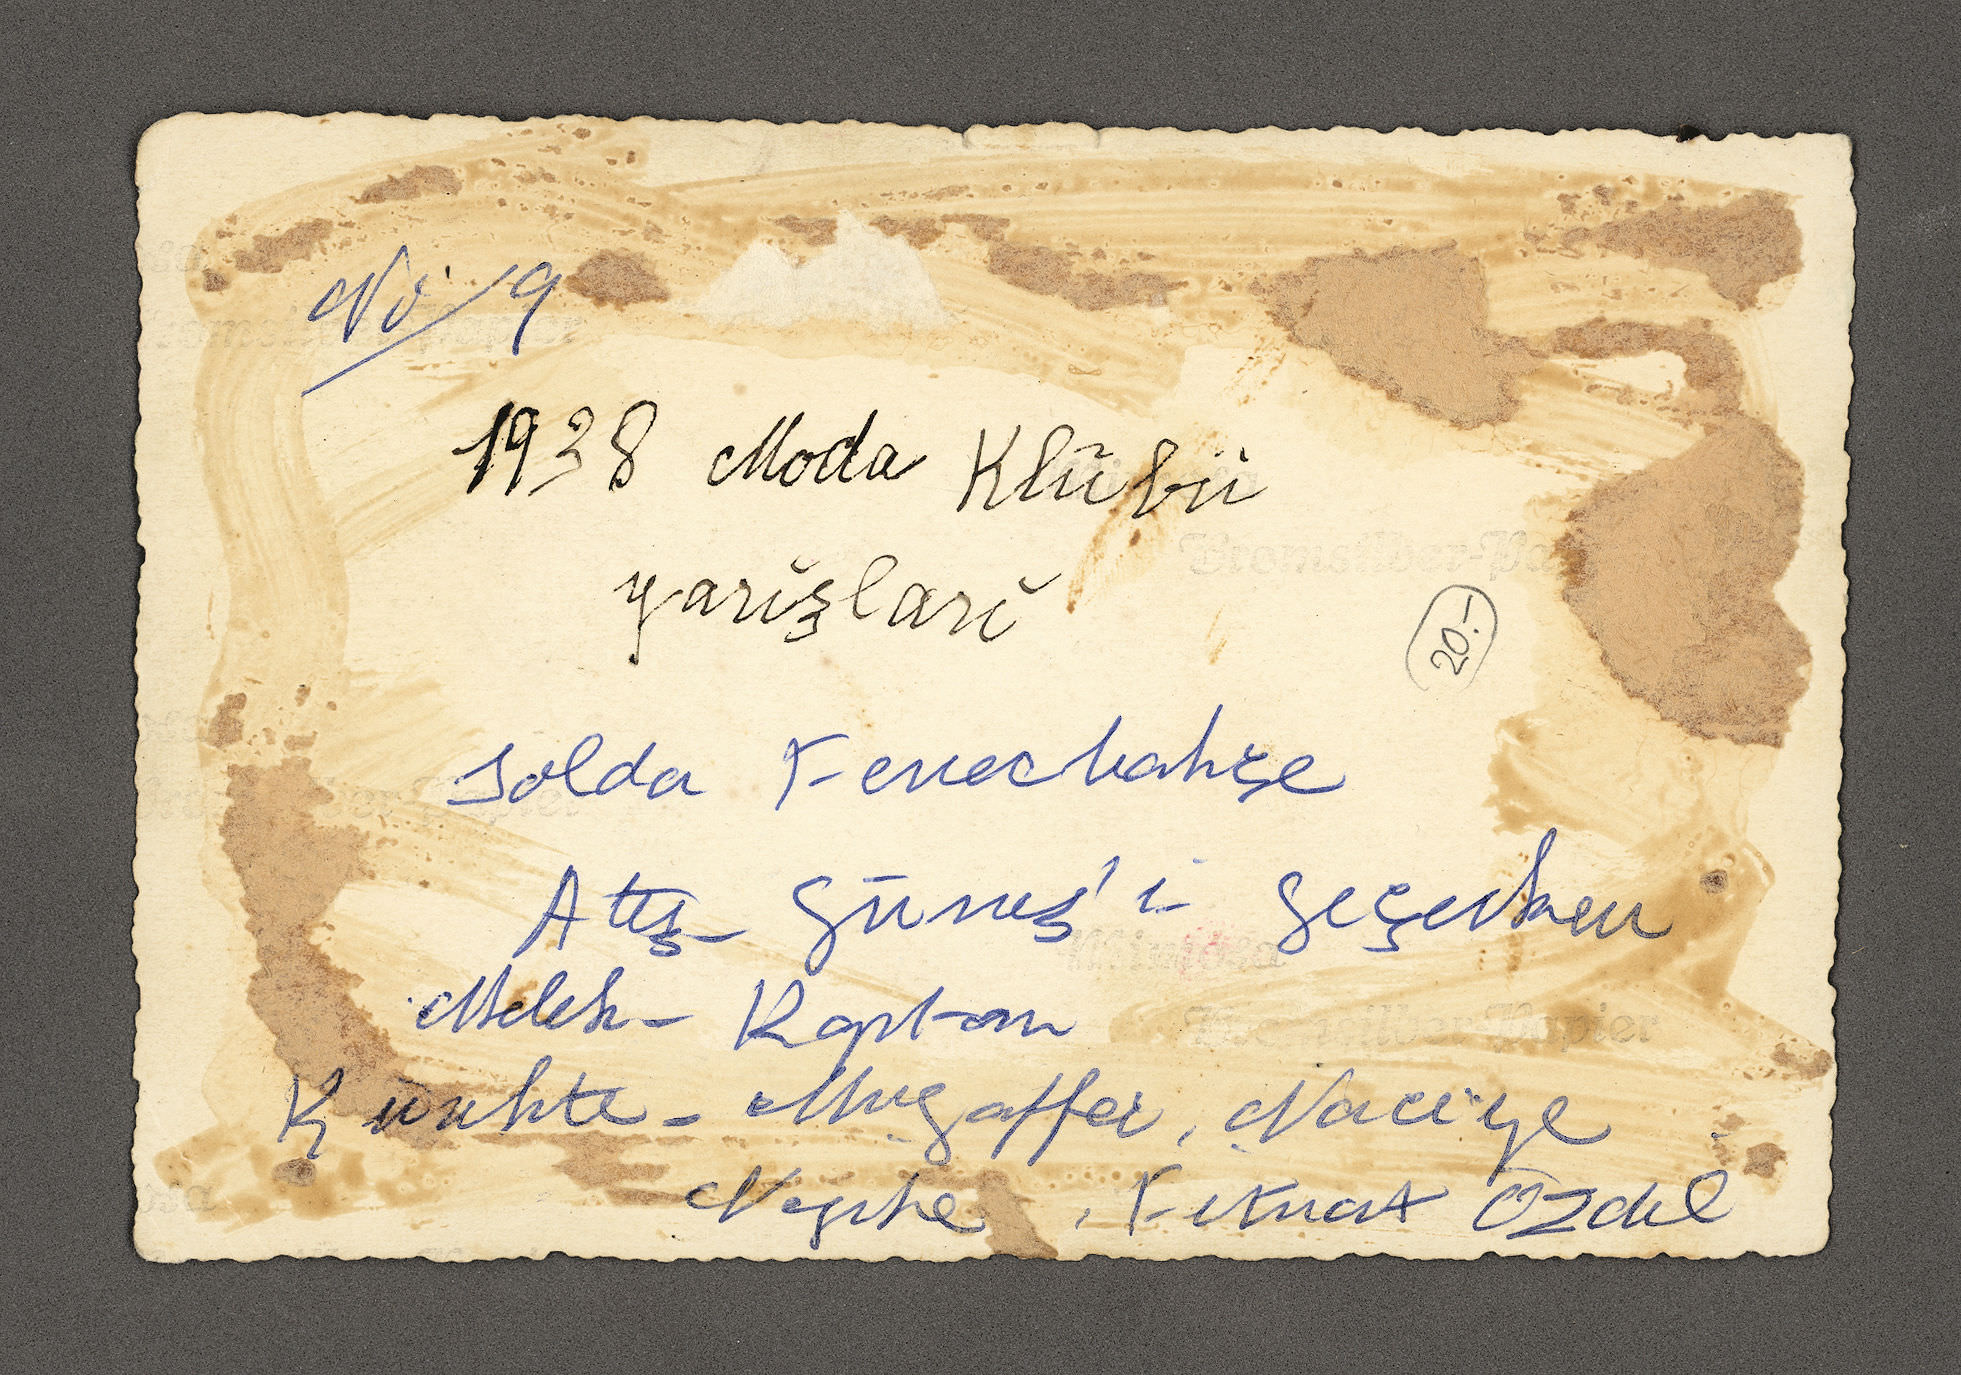 No 9
1938 Moda Klübü
yarışları
20.-
Solda Fenerbahçe
Ateş Güneş'i geçerken
Melek Kaptan
Kürekte - Muzaffer, Naciye
Nezihe, Fitnat Özdil
Bromsilber-Papier
Mimosa
Bromsilber-Papier